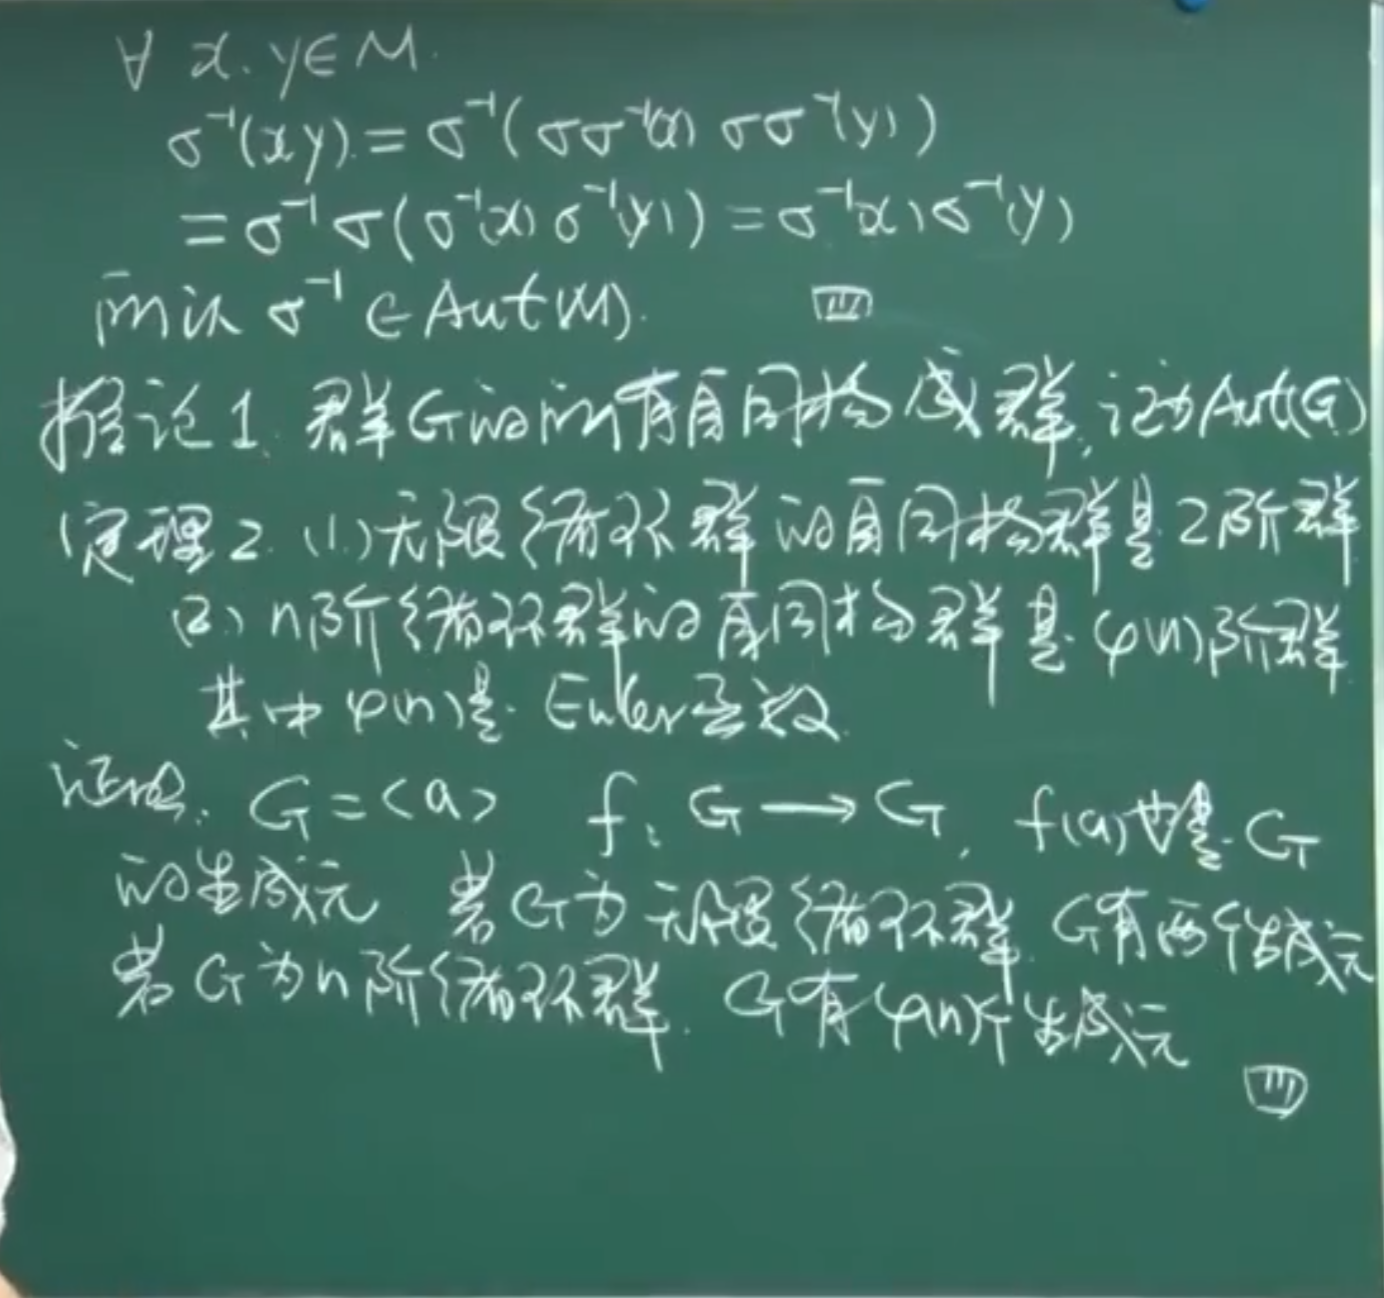 ∀ x, y ∈ M.
σ⁻¹(xy) = σ⁻¹(σσ⁻¹(x) σσ⁻¹(y))
= σ⁻¹σ(σ⁻¹(x) σ⁻¹(y)) = σ⁻¹(x) σ⁻¹(y)
所以 σ⁻¹ ∈ Aut(M).
推论1. 群G的所有自同构成群, 记为Aut(G)
定理2. (1) 无限循环群的自同构群是2阶群
(2) n阶循环群的自同构群是φ(n)阶群
其中φ(n)是Euler函数.
证明. G = <a> f: G → G, f(a)也是G
的生成元 若G为无限循环群. G有两个生成元
若G为n阶循环群. G有φ(n)个生成元